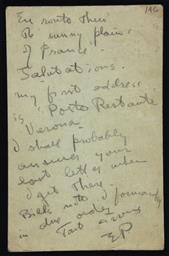 146
En route thru'
th' sunny plains
of France.
Salutations.
my first address
is "Posto Restante
Verona"
I shall probably
answer your
last letter when
I get there.
Bill note I forward
in due order
E.P.